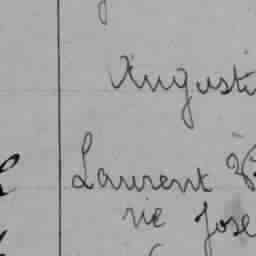 Augusti
Laurent
rie Jose